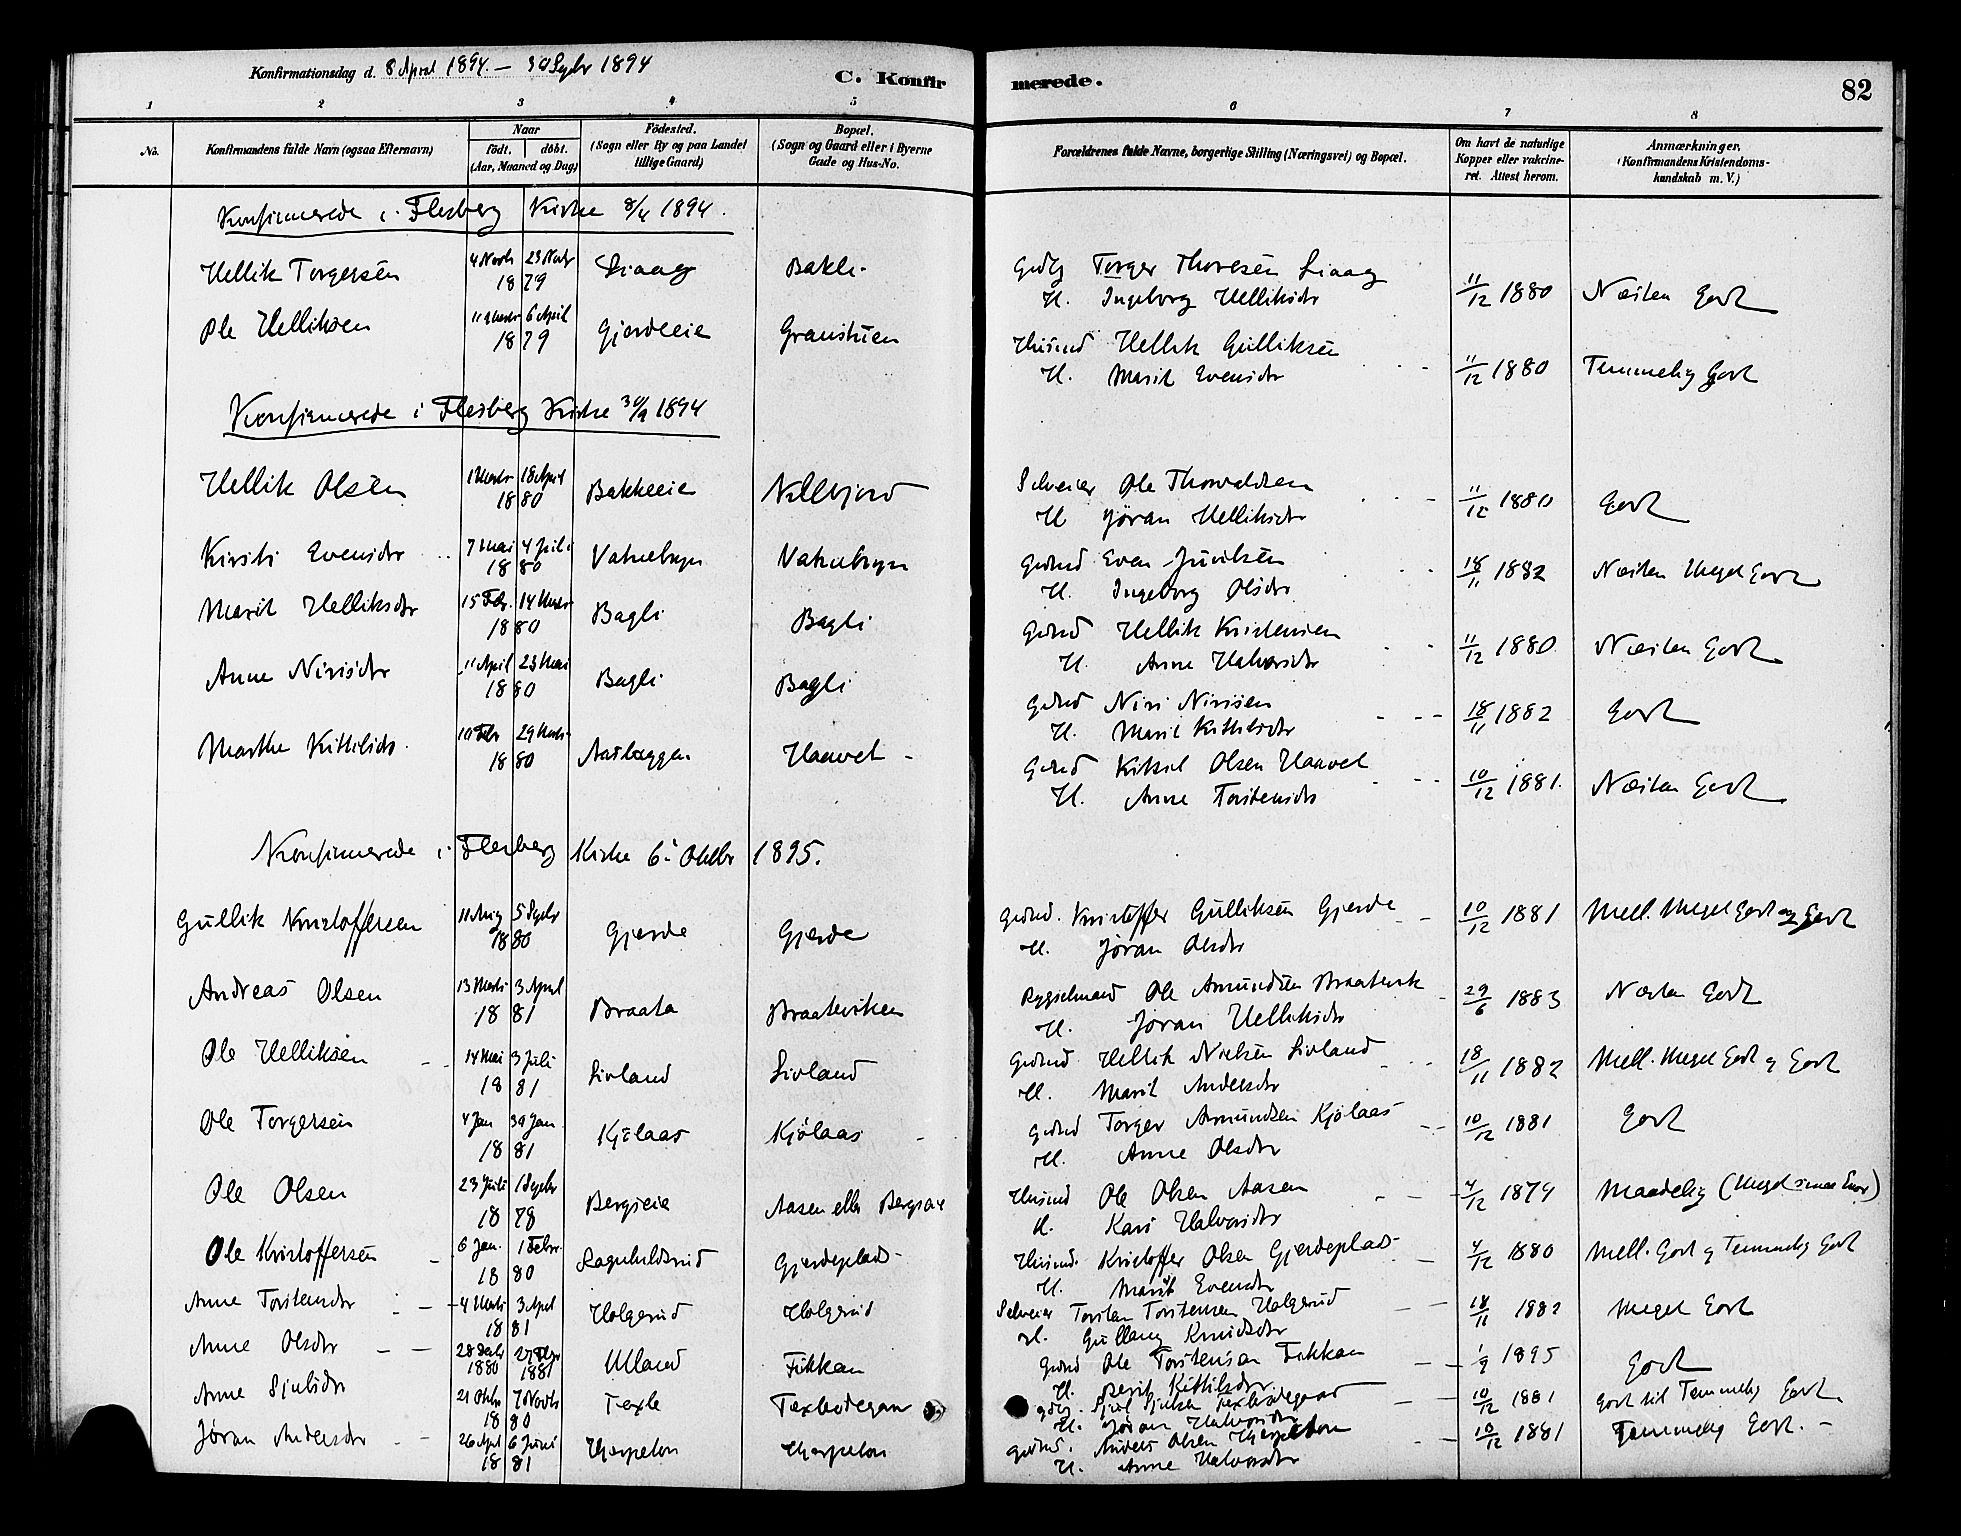 Konfirmationsdag d. 8 April 1894. — 30 Septbr 1894
C. Konfirmerede.
82
1 2 3 4 5 6 7 8
No.
Konfirmandens fulde Navn (ogsaa Efternavn)
Naar
födt. döbt.
(Aar, Maaned og Dag)
Födested.
(Sogn eller By og paa Landet
tillige Gaard)
Bopæl.
(Sogn og Gaard eller i Byerne
Gade og Hus-No.
Forældrenes fulde Navne, borgerlige Stilling (Næringsvei) og Bopæl.
Om havt de naturlige
Kopper eller vakcine-
ret. Attest herom.
Anmærkninger,
(Konfirmandens Kristendoms-
kundskab m. V.)
Konfirmerede i Flesberg Kirke 8/4 1894.
Hellik Torgersen 4 Novbr 23 Novbr 1879 Liaag Bakli Torger Thoresen Liaag 11/12 1880 Næsten Godt
H. Ingeborg Helliksdtr
Ole Helliksen 6 April 1879 Gjerdeeie Husmd Hellik Gulliksen 11/12 1880 Temmelig Godt
H. Marit Evensdtr
Konfirmerede i Flesberg Kirke 30/9 1894
Hellik Olsen 18 April 1880 Bakkeeie Selveier Ole Thorvaldsen 11/12 1880 Godt
H. Jøran Helliksdtr
Kirsti Evensdtr 7 Mai 4 Juli 1880 Vatnebryn Vatnebryn Gaardmd Even Juvelsen 18/11 1882 Næsten Meget Godt
H. Ingeborg Olsdtr
Marit Helliksdtr 15 Febr. 14 Marts 1880 Bagli Bagli Gaardmd Hellik Kristensen 11/12 1880 Næsten Godt
H. Anne Halvorsdtr
Anne Nirisdtr 11 April 23 Mai 1880 Bagli Bagli Gaardmd Niri Nirisen 18/11 1882 Godt
H. Marit Kittilsdtr
Marthe Kittilsdtr. 29 Marts 1880 Aasbøggen Haavet Gaardmd Kittil Olsen Haavet 10/12 1881. Næsten Godt
H. Anne Torstensdtr
Konfirmerede i Flesberg Kirke 6 Oktbr 1895.
Gullik Kristoffersen 11 Aug 5 Septbr 1880 Gjerde Gjerde Gaardmd. Kristoffer Gulliksen Gjerde 10/12 1881 Mell. Meget Godt og Godt
H. Jøran Olsdtr
Andreas Olsen 13 Marts 3 April 1881 Braata Braateviken Ole Amundsen 29/6 1883 Næsten Godt
H. Jøran Helliksdtr
Ole Helliksen 14 Mai 3 Juli 1881 Livland Livland Gaardmd Hellik Nielsen Livland 18/11 1882 Mell. Meget Godt og Godt
H. Marit Andersdtr
Ole Torgersen 4 Jan 30 Jan. 1881 Kjölaas Kjölaas Gaardmd Torger Amundsen Kjölaas 10/12 1881 Godt
H. Anne Olsdtr
Ole Olsen 23 Juli 1 Septbr 1878 Bergseie Aasen eller Husmd Ole Olsen Aasen 4/12 1879 Maadelig
H. Kari Halvorsdtr
Ole Kristoffersen 6 Jan. 1 Febr. 1880 Ragnhildsrud Gjerdeplads Husmd. Kristoffer Olsen Gjerdeplads 4/12 1880 Mell. Godt og Temmelig Godt
H. Marit Evensdtr
Anne Torstensdtr 4 Marts 3 April 1881 Holgerud Holgerud Selveier Torsten Torstensen Holgerud 18/11 1882 Meget Godt
H. Gullaug Knudsdtr
Anne Olsdtr 1880 27 Febr 1881 Ulland Fikkan Gaardmd Ole Torstensen Fikkan 1/9 1895 Godt
H. Berit Kittilsdtr
Anne Sjulsdtr 21 Oktbr 7 Novbr 1880 Texle Texlbødegaar 10/12 1881 Godt til Temmelig Godt
H. Jøran Halvorsdtr
Jøran Andersdtr 26 Apl 6 Juni 1881 Hærpeton Hærpeton Gaardmd. Anders Olsen Hærpeton 10/12 1881 Temmelig Godt.
H. Anne Halvorsdtr